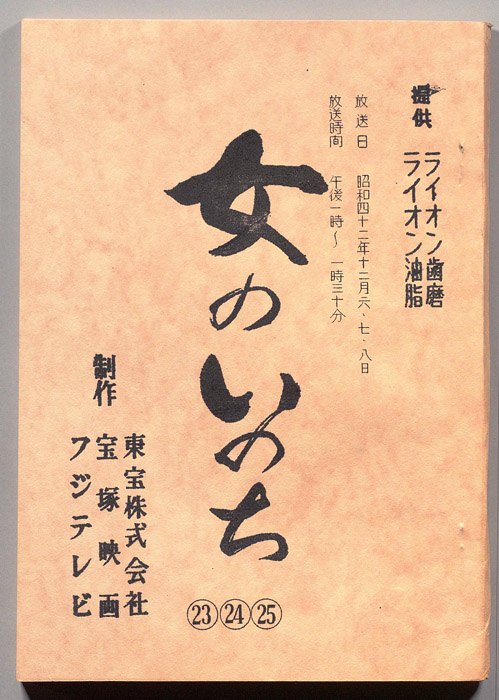 提供
ライオン歯磨
ライオン油脂
放送日 昭和四十二年十二月六、七、八日
放送時間 午後一時〜一時三十分
女のいのち
㉓㉔㉕
制作
東宝株式会社
宝塚映画
フジテレビ